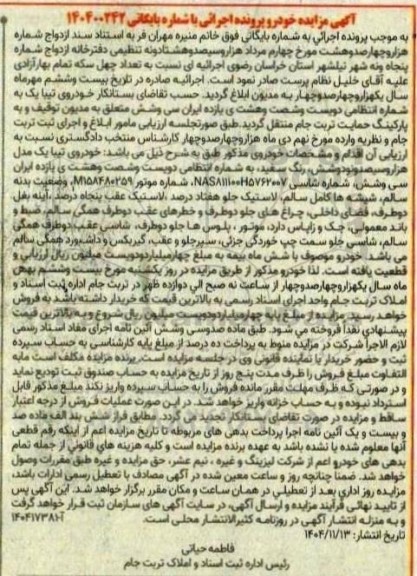 آگهی مزایده خودرو پرونده اجرائی با شماره بایگانی ۱۴۰۴۰۰۲۴۲
به موجب پرونده اجرائی به شماره بایگانی فوق خانم منیره مهران فر به استناد سند ازدواج شماره
هزاروچهارصدوهشت مورخ چهارم مرداد هزاروسیصدوهشتادونه تنظیمی دفترخانه ازدواج شماره
پنجاه ونه شهر نیلشهر استان خراسان رضوی اجرائیه ای نسبت به تعداد چهل سکه تمام بهارآزادی
علیه آقای خلیل نظام پرست صادر نمود است. اجرائیه صادره در تاریخ بیست وششم مهرماه
سال یکهزاروچهارصدوچهار به مدیون ابلاغ گردید. حسب تقاضای بستانکار خودروی تیبا یک به
شماره انتظامی دویست وشصت وهشت ی یازده ایران سی وشش متعلق به مدیون توقیف و به
پارکینگ حمایت تربت جام منتقل گردید. طبق صورتجلسه ارزیابی مامور ابلاغ و اجرای ثبت تربت
جام و نظریه وارده مورخ نهم دی ماه هزاروچهارصدوچهار کارشناس منتخب دادگستری نسبت به
ارزیابی آن اقدام و مشخصات خودروی مذکور طبق به شرح ذیل می باشد: خودروی تیبا یک مدل
هزاروسیصدونودوشش، رنگ سفید، به شماره انتظامی دویست وشصت وهشت ی یازده ایران
سی وشش، شماره شاسی NAS۸۱۱۱۰۰H۵۷۶۲۰۰۷، شماره موتور M۱۵۸۴۸۰۲۵۹، وضعیت بدنه
سالم، شیشه ها کامل سالم، لاستیک جلو هفتاد درصد، لاستیک عقب پنجاه درصد، آینه بغل
دوطرف، فضای داخلی، چراغ های جلو دوطرف و خطرهای عقب دوطرف همگی سالم، ضبط و
باند معمولی، جک و زاپاس دارد، موتور، پلوس ها جلو دوطرف، شاسی عقب دوطرف همگی
سالم، شاسی جلو سمت چپ خوردگی جزئی، سپرجلو و عقب، گیربکس و داشبورد همگی سالم
می باشد. خودرو موصوف با شش ماه بیمه به مبلغ چهارمیلیاردودویست میلیون ریال ارزیابی و
قطعیت یافته است. لذا خودرو مذکور از طریق مزایده در روز یکشنبه مورخ بیست وششم بهمن
ماه سال یکهزاروچهارصدوچهار از ساعت نه صبح الی دوازده ظهر در تربت جام اداره ثبت اسناد و
املاک تربت جام واحد اجرای اسناد رسمی به بالاترین قیمت که خریدار داشته باشد به فروش
خواهد رسید. مزایده از مبلغ پایه چهارمیلیاردودویست میلیون ریال شروع و به بالاترین قیمت
پیشنهادی نقدا فروخته می شود. طبق ماده صدوسی وشش آئین نامه اجرای مفاد اسناد رسمی
لازم الاجرا شرکت در مزایده منوط به پرداخت ده درصد از مبلغ پایه کارشناسی به حساب سپرده
ثبت و حضور خریدار یا نماینده قانونی وی در جلسه مزایده است. برنده مزایده مکلف است مابه
التفاوت مبلغ فروش را ظرف مدت پنج روز از تاریخ مزایده به حساب صندوق ثبت تودیع نماید
و در صورتی که ظرف مهلت مقرر مانده فروش را به حساب سپرده واریز نکند مبلغ مذکور قابل
استرداد نبوده و به حساب خزانه واریز خواهد شد. در این صورت عملیات فروش از درجه اعتبار
ساقط و مزایده در صورت تقاضای بستانکار تجدید می گردد. مطابق فراز شش بند الف ماده صد
و بیست و یک آئین نامه اجرا پرداخت بدهی های مربوطه تا تاریخ مزایده اعم از اینکه رقم قطعی
آنها معلوم شده یا نشده باشد به عهده برنده مزایده است و کلیه هزینه های قانونی از جمله تمام
بدهی های خودرو اعم از شرکت لیزینگ و غیره، نیم عشر، حق مزایده و غیره طبق مقررات وصول
خواهد شد. ضمنا چنانچه روز و ساعت معین شده در آگهی مصادف با تعطیل رسمی ادارات باشد،
مزایده روز اداری بعد از تعطیلی در همان ساعت و مکان مقرر برگزار خواهد شد. این آگهی پس
از تایید نهائی فرآیند مزایده و ارسال آگهی، در سایت آگهی های سازمان ثبت قرار خواهد گرفت
و به منزله انتشار آگهی در روزنامه کثیرالانتشار محلی است. آ-۱۴۰۴۱۷۳۸۱
تاریخ انتشار: ۱۴۰۴/۱۱/۱۳
فاطمه حیاتی
رئیس اداره ثبت اسناد و املاک تربت جام